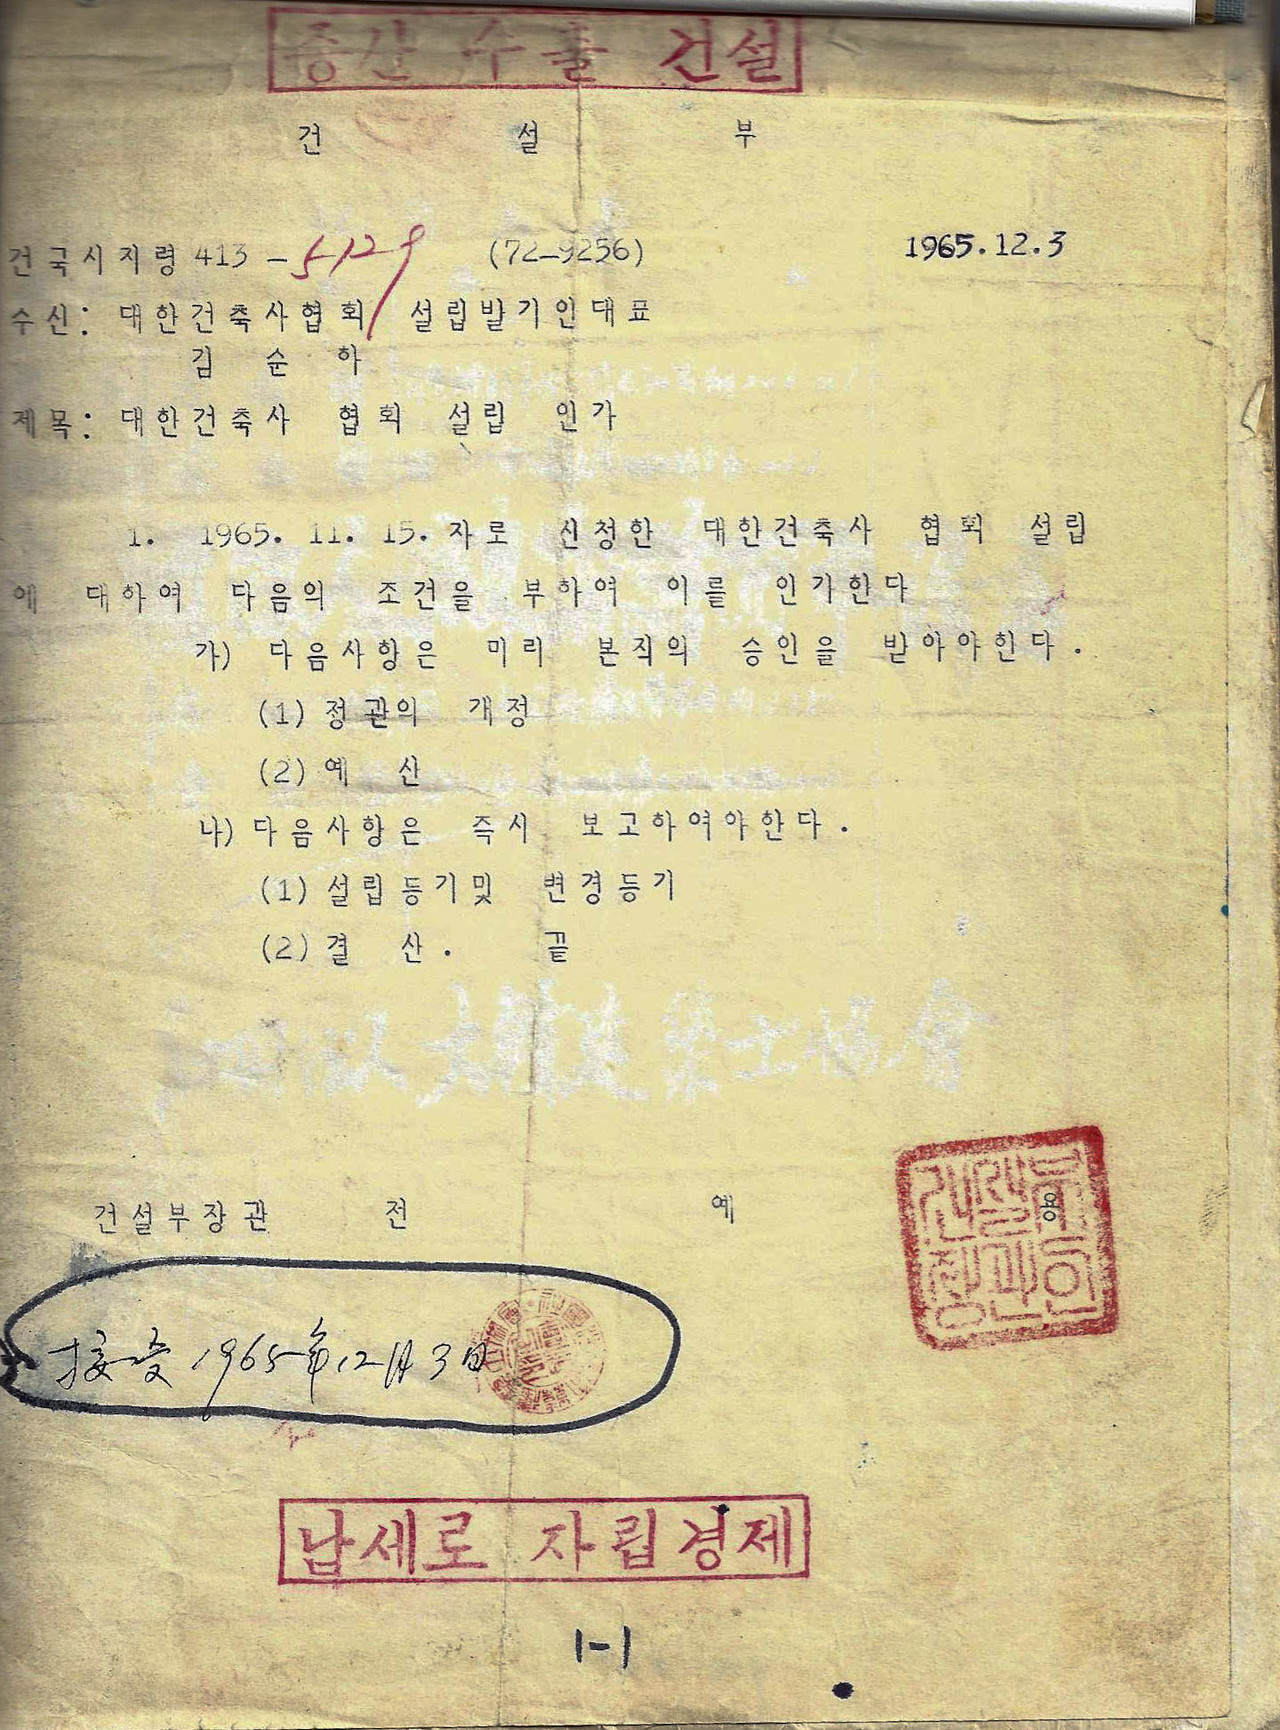 증산 수출 건설
건 설 부
건국시지령 413-5129 (72-9256) 1965.12.3
수신: 대한건축사협회 설립발기인대표
김 순 하
제목: 대한건축사 협회 설립 인가
1. 1965. 11. 15. 자로 신청한 대한건축사 협회 설립
에 대하여 다음의 조건을 부하여 이를 인가한다
가) 다음사항은 미리 본직의 승인을 받아야한다.
(1) 정관의 개정
(2) 예 산
나) 다음사항은 즉시 보고하여야한다.
(1) 설립등기및 변경등기
(2) 결 산. 끝
건설부장관 전 예 용
건설부장관인
接受 1965年12月3日
납세로 자립경제
1-1